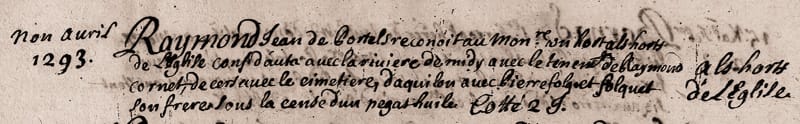 non avril
1293.
Raymond Jean de Portels reconoit au Mon.re un hort als horts
de l'Eglise conf. d'auta avec la riviere de midy avec le tenent de Raymond
cornet, de cers avec le cimetiere, d'aquilon avec pierre folq et folquet
son frere sous la cense d'un pegat huile. Cotté 2 J.
als horts
de l'Eglise.